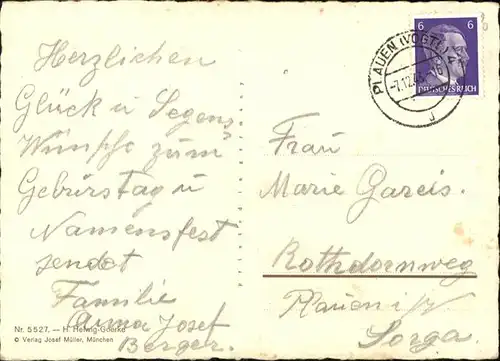 Herzlichen
Glück u Segens
Wünsche zum
Geburstag u
Namensfest
sendet
Familie
Anna Josef
Berger.
Nr. 5527. — H. Hellwig-Goerke
© Verlag Josef Müller, München
PLAUEN (VOGTL)
-7.12.43
J
6 6
DEUTSCHES REICH
Frau
Marie Gareis.
Rothdornweg
Plauen i/V
Sorga.